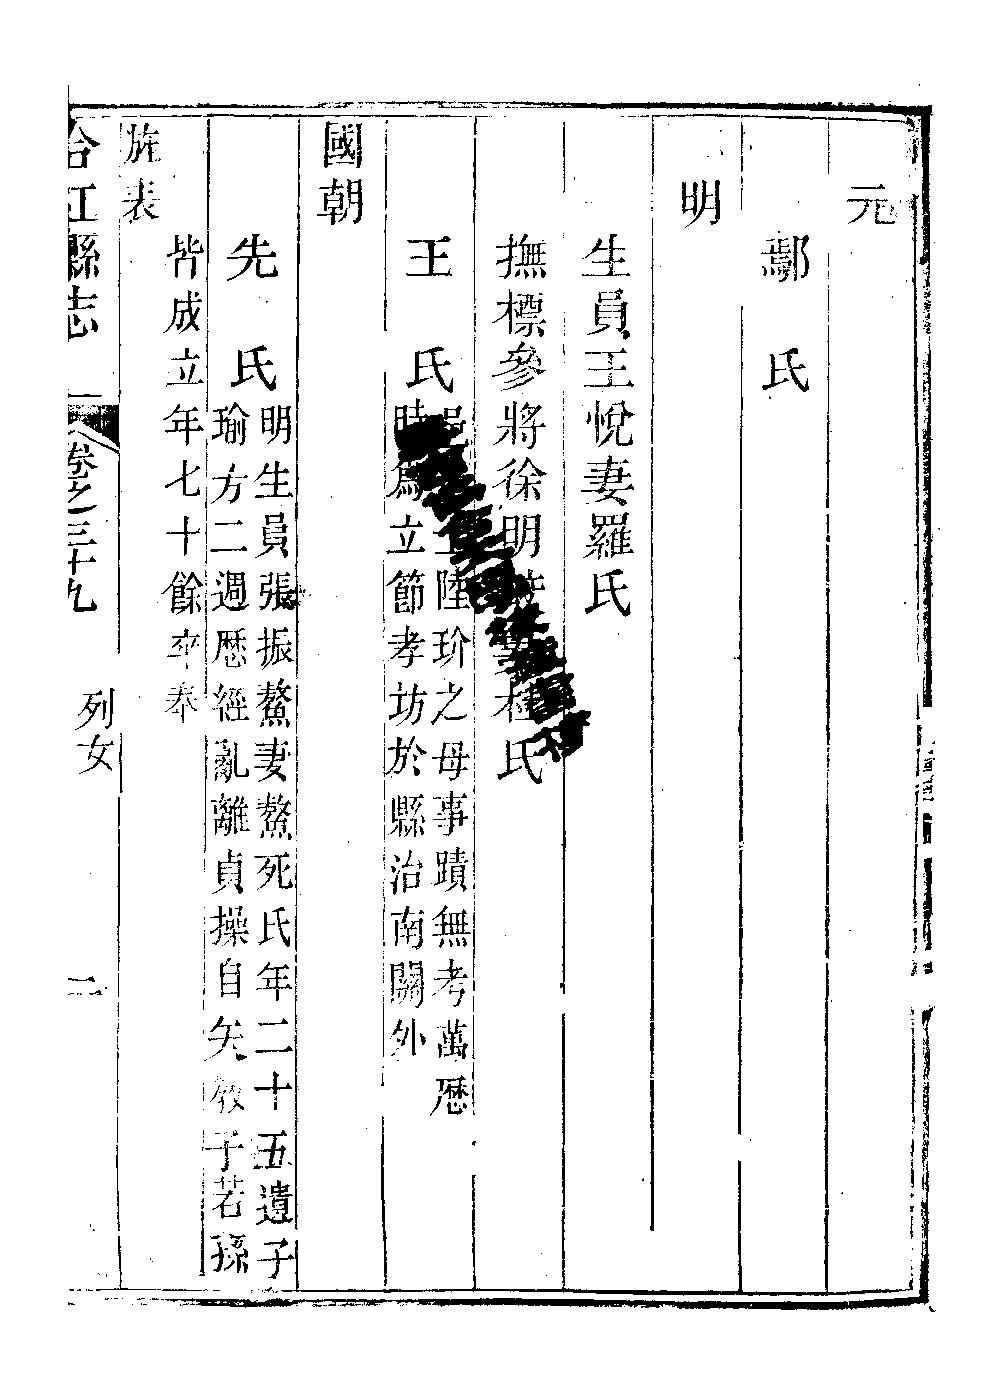 元
鄢氏
明
生員王悅妻羅氏
撫標參將徐明妻杜氏
王氏
陸玠之母事蹟無考萬厯
時為立節孝坊於縣治南關外
國朝
先氏
明生員張振鰲妻鰲死氏年二十五遺子
瑜方二週厯經亂離貞操自矢教子若孫
皆成立年七十餘卒奉
旌表
合江縣志
卷之三十九
列女
二